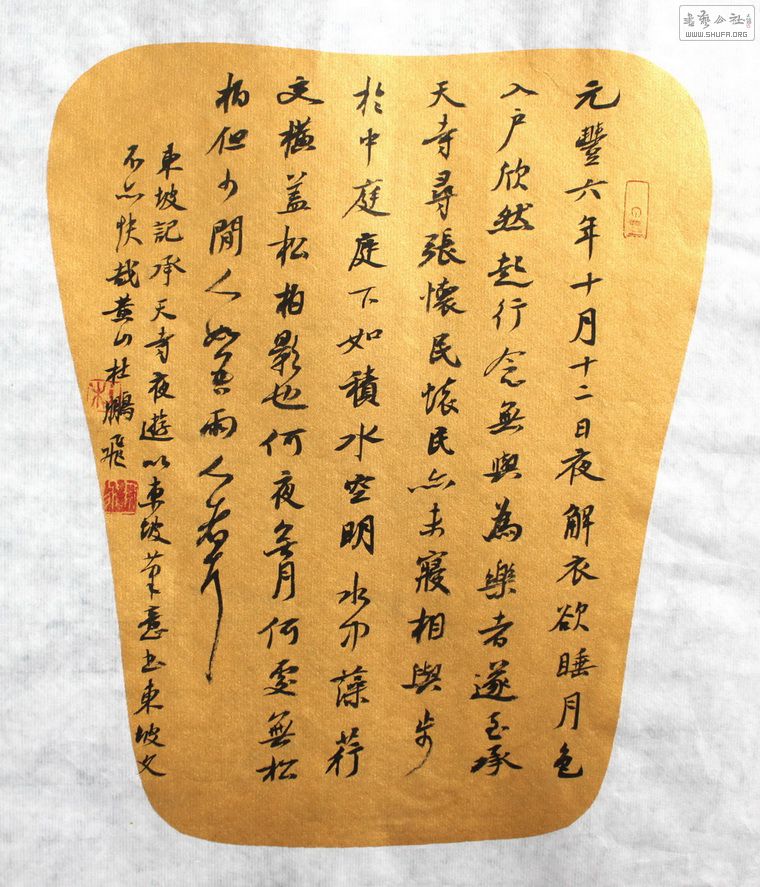 元豐六年十月十二日夜解衣欲睡月色
入户欣然起行念無與為樂者遂至承
天寺尋張懷民懷民亦未寢相與步
於中庭庭下如積水空明水中藻荇
交橫蓋松柏影也何夜無月何處無松
柏但少閒人如吾兩人者耳
東坡記承天寺夜遊以東坡筆意书東坡文
不亦快哉黄山杜鵬飛
書藝公社
WWW.SHUFA.ORG